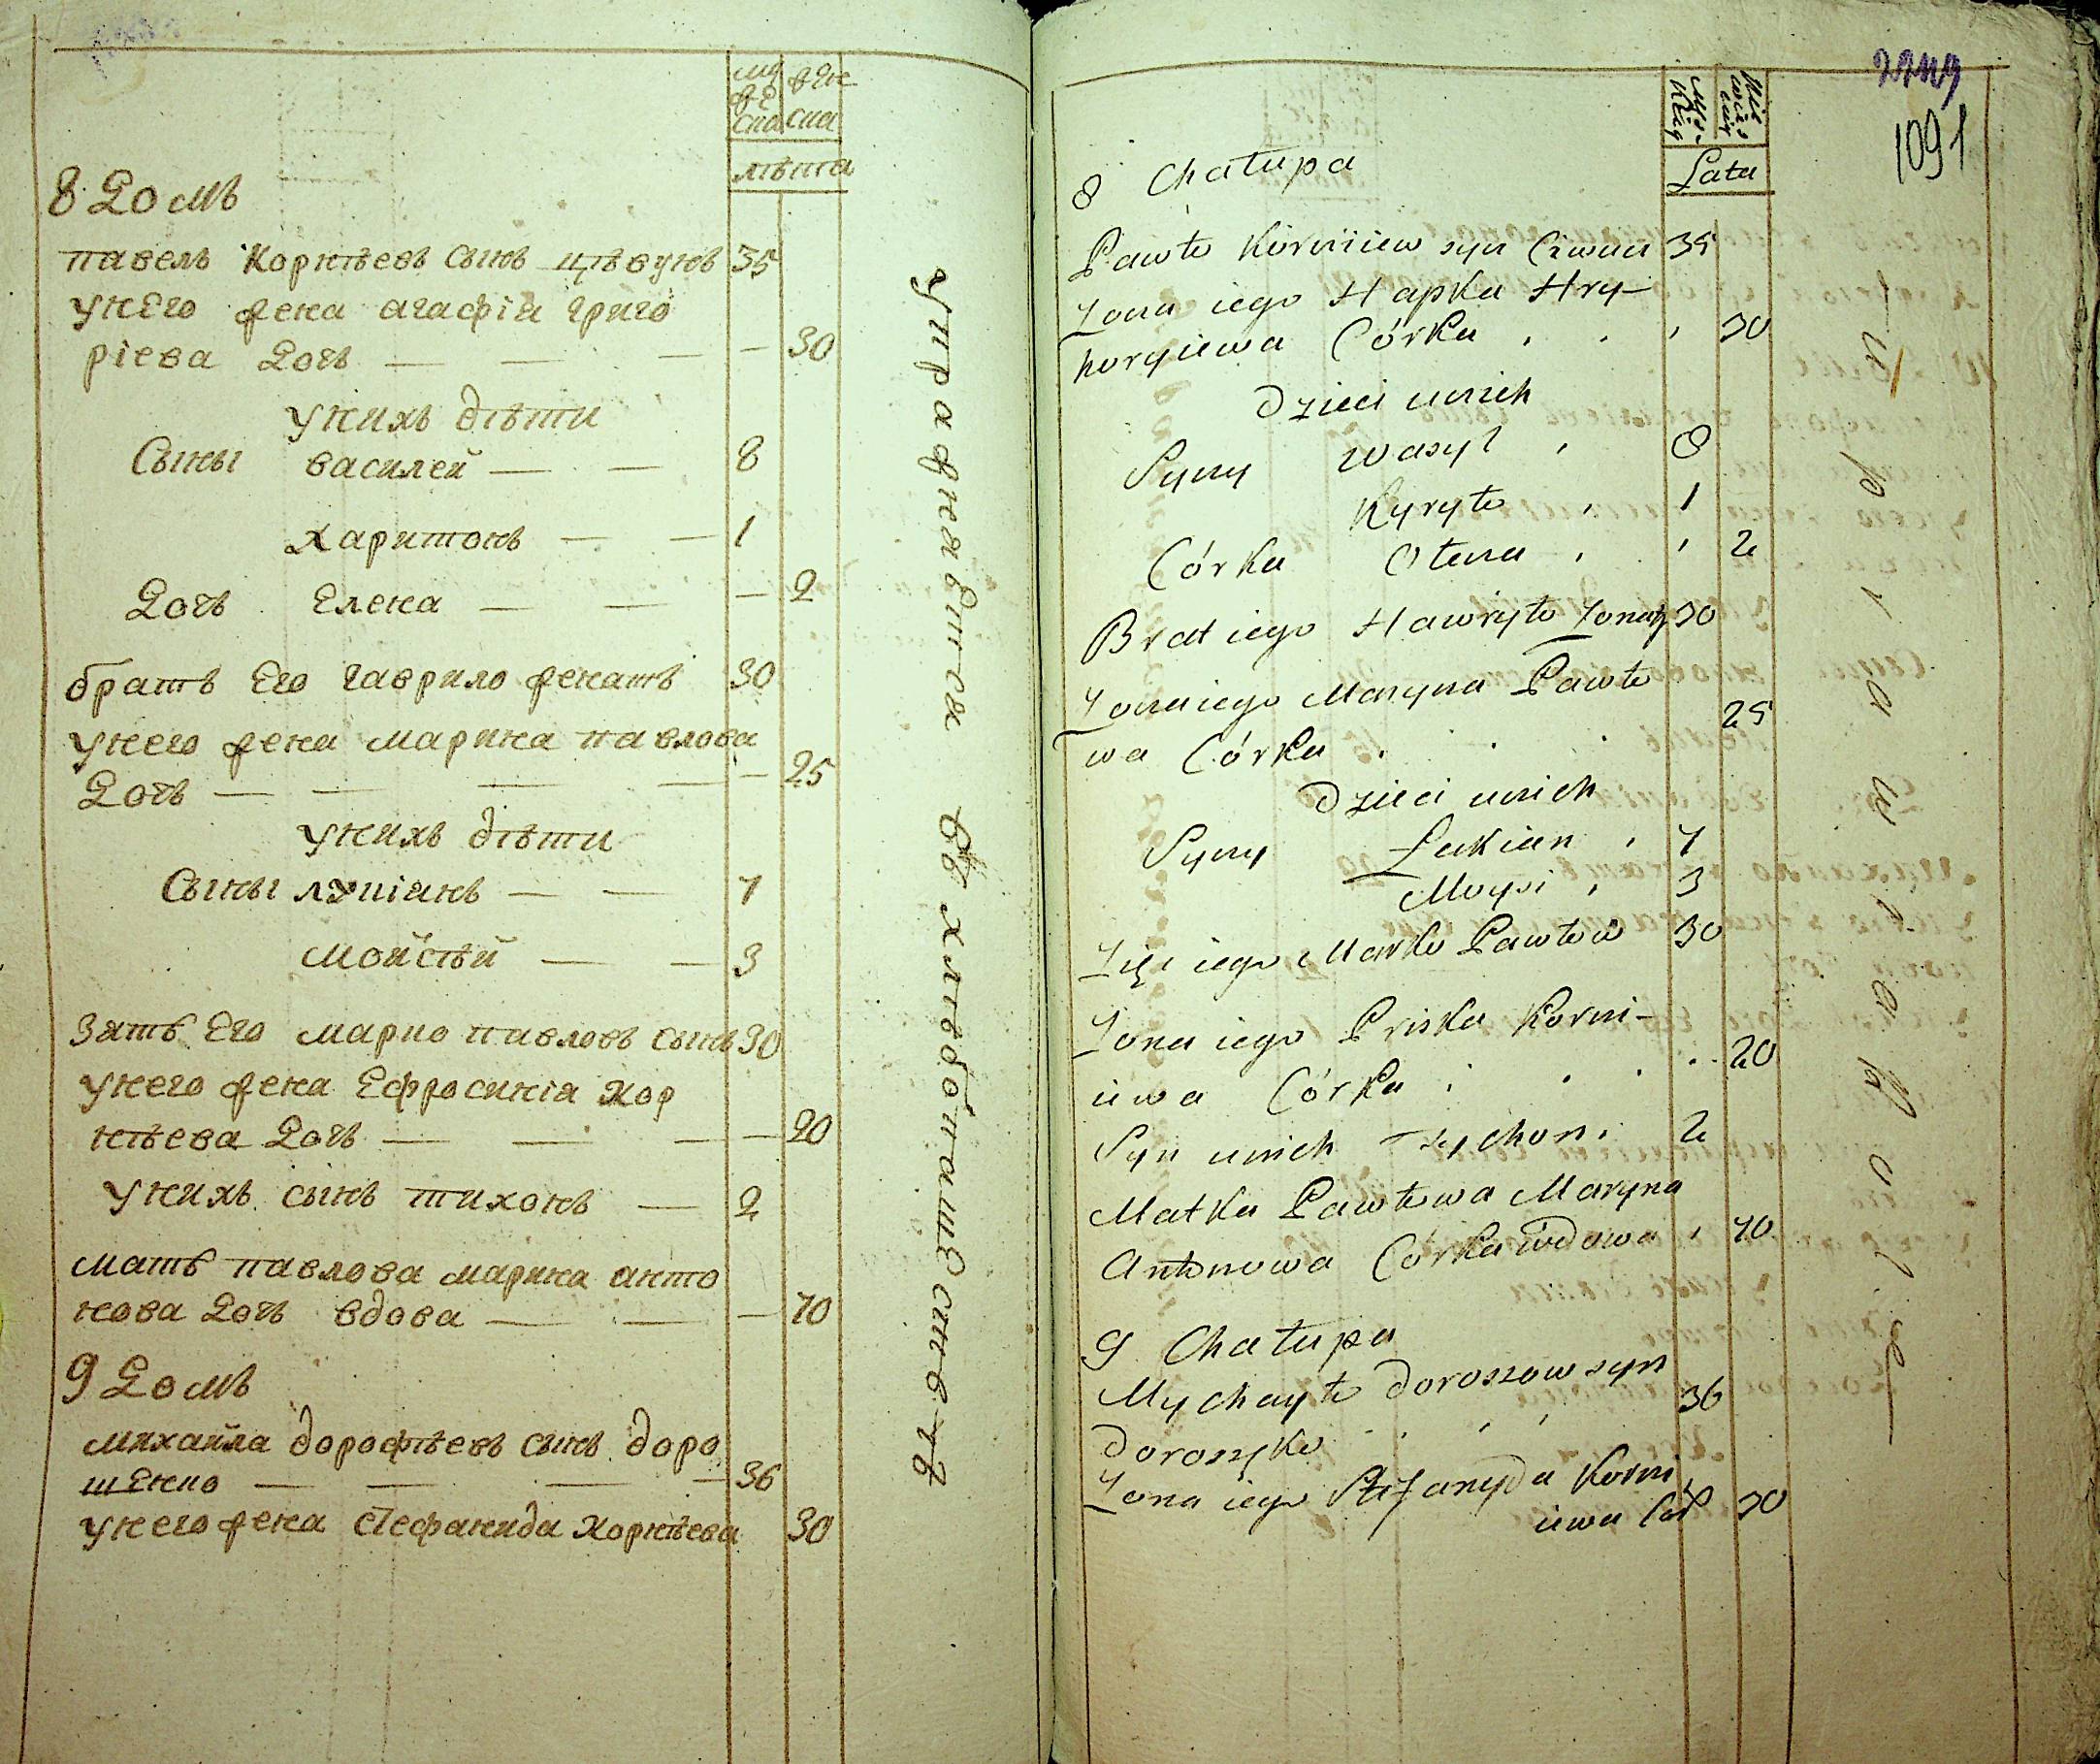 муже
ска
женска
лѣта
8 Домъ
павелъ Корнѣевъ сынъ цѣвунъ 35
унего жена агафія григо
ріева Дочь — — — — 30
унихъ дѣти
Сыны василей — — 8
харитонъ — — 1
Дочь Елена — — — 2
братъ Его гаврило женатъ 30
унего жена марина павлова
Дочь — — — — — 25
унихъ дѣти
Сыны лукіянъ — — 7
мойсѣй — — 3
Зять Его марко павловъ сынъ 30
унего жена Ефросинія Кор
нѣева Дочь — — — — 20
унихъ сынъ тихонъ — 2
мать павлова марина анто
нова Дочь вдова — — — 70
9 Домъ
михайла дорофѣевъ сынъ доро
шенко — — — — 36
унего жена стефанида корнѣева 30
упражняется въ хлѣбопашествѣ
2249
1091
Lata
8 Chałupa
Pawło Korniiew syn Ciwun 35
Żona iego Hapka Hry-
horyiewa Córka . . , 30
Dzieci unich
Syny Wasyl , 8
Kyryło , 1
Córka Ołena , , 2
Brat iego Hawryło Żonaty 30
Żona iego Maryna Pawło
wa Córka . . . 25
Dzieci unich
Syny Łukian , 7
Moysi , 3
Zięć iego Marko Pawłow 30
Żona iego Priska Korni-
iewa Córka . . . . 20
Syn unich Tychon . 2
Matka Pawłowa Maryna
Antonowa Córka Wdowa , 70
9 Chałupa
Mychayło Doroszow syn
Doroszko . , , 36
Żona iego Stefanyda Korni
iewa Cór 30